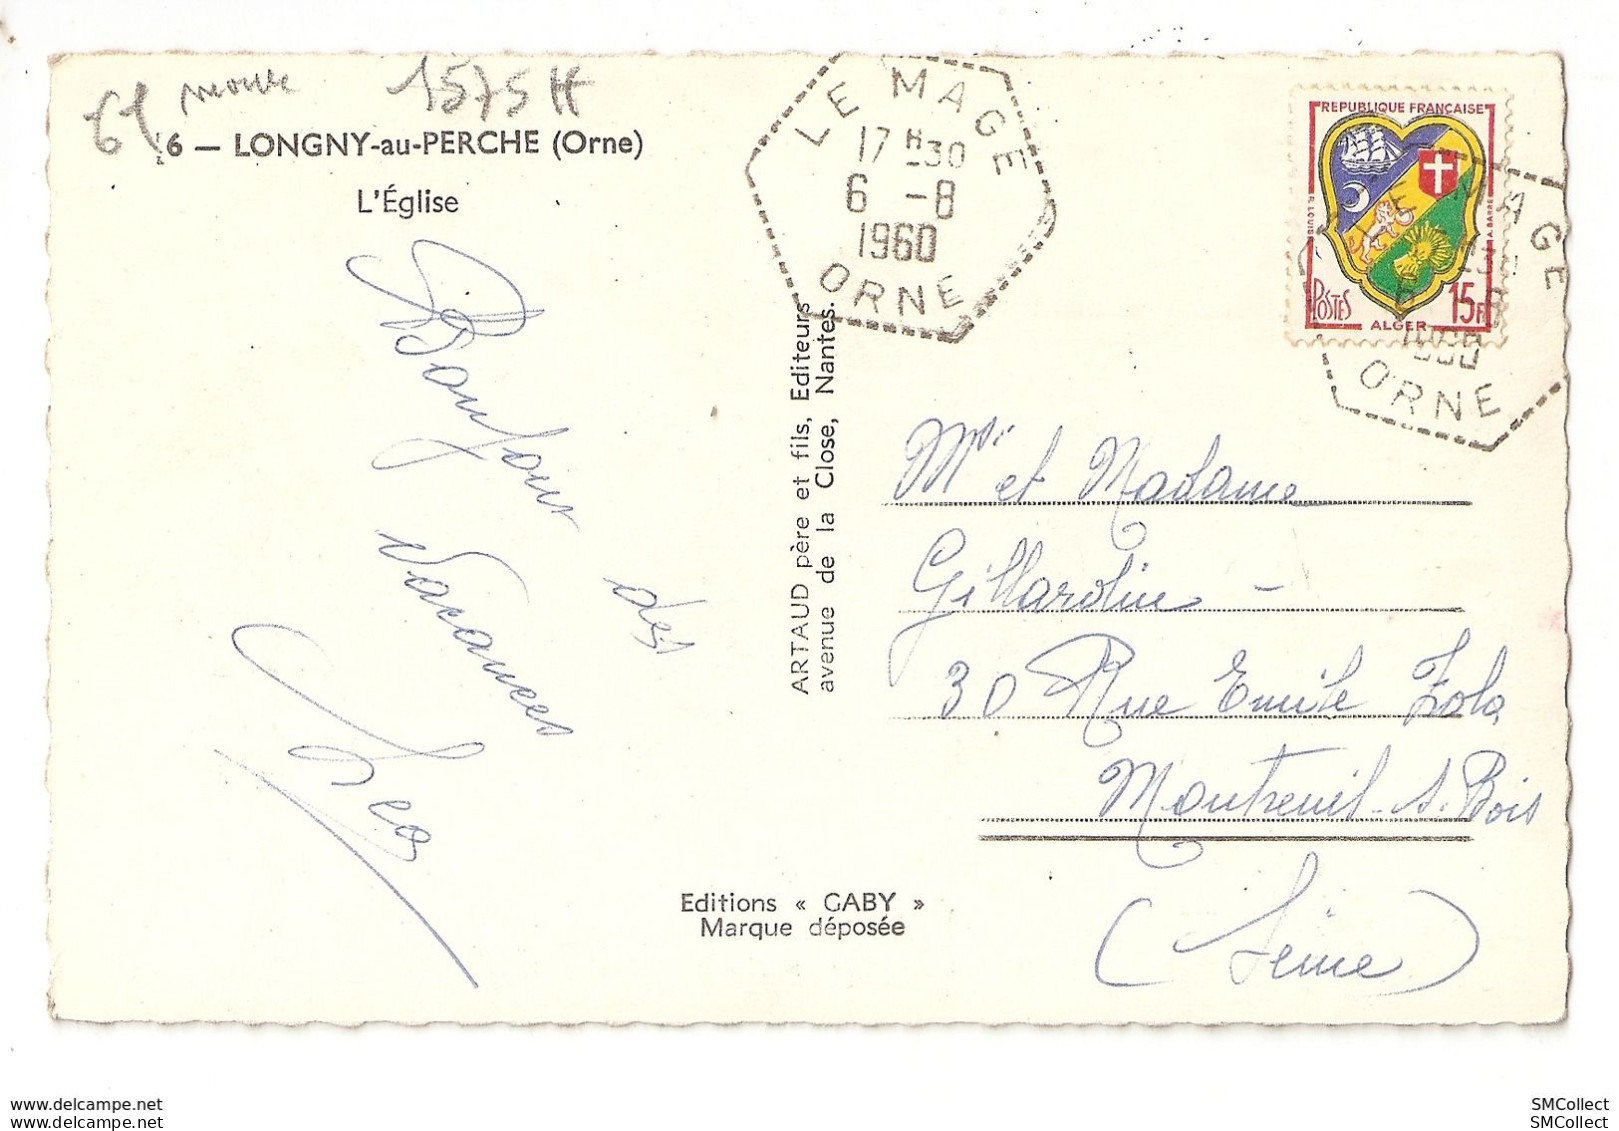 1575 H
6 — LONGNY-au-PERCHE (Orne)
L'Église
Bonjour
des
Vacances
ARTAUD père et fils, Editeurs
avenue de la Close, Nantes.
LE MAGE
17 H 30
6 -8
1960
ORNE
REPUBLIQUE FRANÇAISE
R. LOUIS
A. BARRE
POSTES
15F
ALGER
LE MAGE
1960
ORNE
Mr et Madame
Gillardin -
30 Rue Emile Zola
Montreuil-s.Bois
(Seine)
Editions « GABY »
Marque déposée
www.delcampe.net
www.delcampe.net
SMCollect
SMCollect